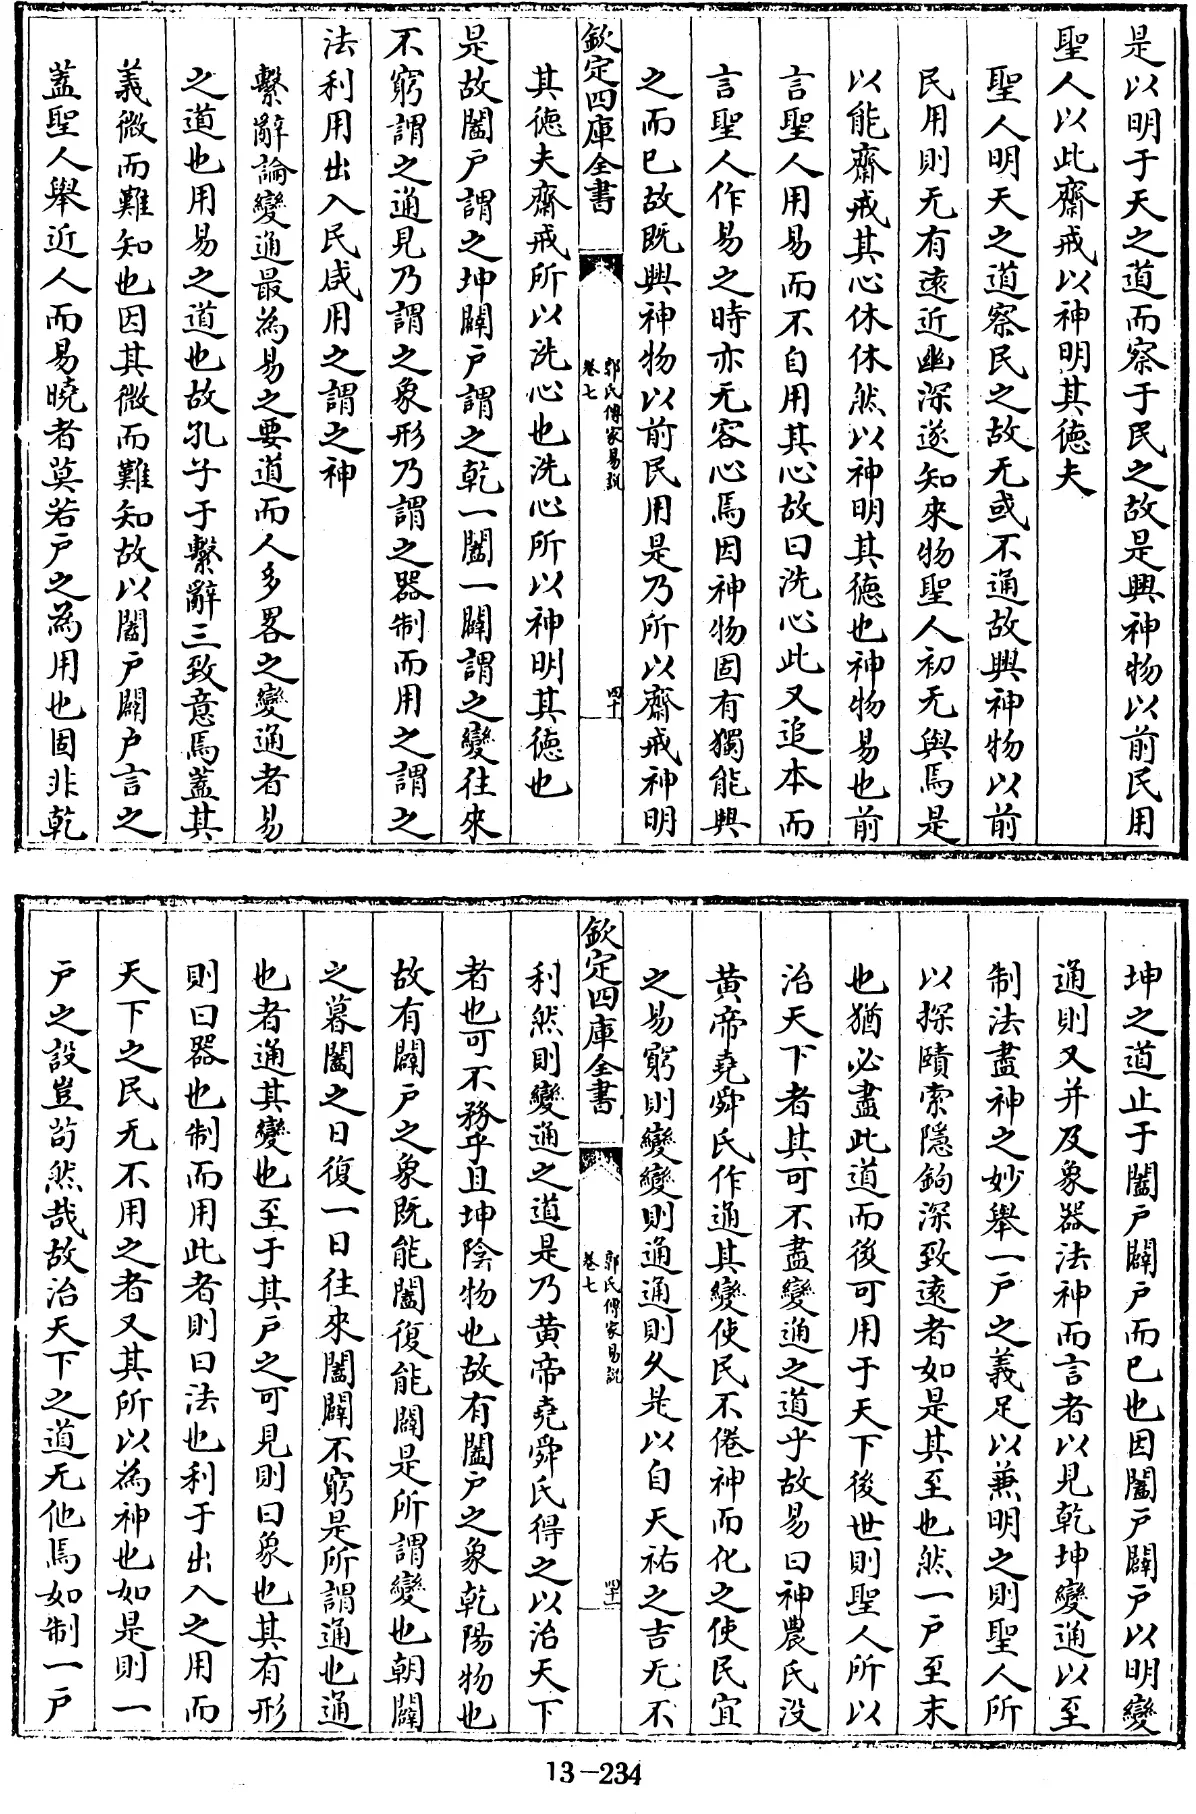 是以明于天之道而察于民之故是興神物以前民用
聖人以此齋戒以神明其德夫
聖人明天之道察民之故无或不通故興神物以前
民用則无有遠近幽深遂知來物聖人初无與焉是
以能齋戒其心休休然以神明其德也神物易也前
言聖人用易而不自用其心故曰洗心此又追本而
言聖人作易之時亦无容心焉因神物固有獨能興
之而已故既興神物以前民用是乃所以齋戒神明
欽定四庫全書
郭氏傳家易說
卷七
四十
其德夫齋戒所以洗心也洗心所以神明其德也
是故闔戶謂之坤闢戶謂之乾一闔一闢謂之變往來
不窮謂之通見乃謂之象形乃謂之器制而用之謂之
法利用出入民咸用之謂之神
繫辭論變通最為易之要道而人多畧之變通者易
之道也用易之道也故孔子于繫辭三致意焉蓋其
義微而難知也因其微而難知故以闔戶闢戶言之
蓋聖人舉近人而易曉者莫若戶之為用也固非乾
坤之道止于闔戶闢戶而已也因闔戶闢戶以明變
通則又并及象器法神而言者以見乾坤變通以至
制法盡神之妙舉一戶之義足以兼明之則聖人所
以探賾索隱鉤深致遠者如是其至也然一戶至末
也猶必盡此道而後可用于天下後世則聖人所以
治天下者其可不盡變通之道乎故易曰神農氏沒
黃帝堯舜氏作通其變使民不倦神而化之使民宜
之易窮則變變則通通則久是以自天祐之吉无不
欽定四庫全書
郭氏傳家易說
卷七
四十一
利然則變通之道是乃黃帝堯舜氏得之以治天下
者也可不務乎且坤陰物也故有闔戶之象乾陽物也
故有闢戶之象既能闔復能闢是所謂變也朝闢
之暮闔之日復一日往來闔闢不窮是所謂通也通
也者通其變也至于其戶之可見則曰象也其有形
則曰器也制而用此者則曰法也利于出入之用而
天下之民无不用之者又其所以為神也如是則一
戶之設豈苟然哉故治天下之道无他焉如制一戶
13-234